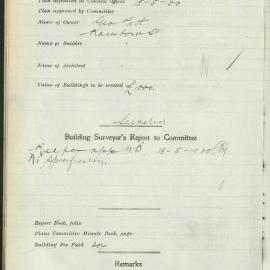 Plan deposited at Council Office 18-5-20
Plan approved by Committee
Name of Owner Geo Pitt
Name of Builder
Name of Architect
N 1
Value of Buildings to be erected £1,000.
Building Surveyor's Report to Committee
18-5-1920
No Specification.
Report Book, folio
Plans Committee Minute Book, page
Building Fee Paid
Remarks